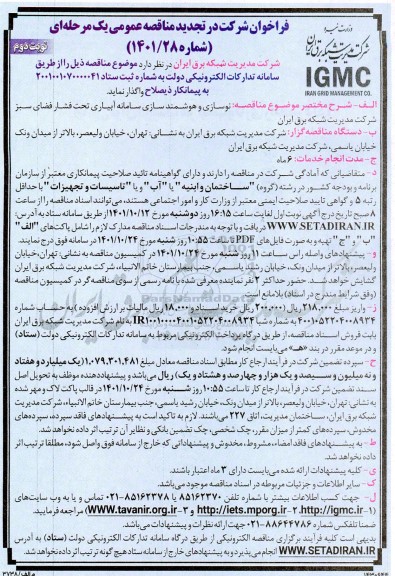 وزارت نیرو
شرکت مدیریت شبکه برق ایران
IGMC
IRAN GRID MANAGEMENT CO.
فراخوان شرکت در تجدید مناقصه عمومی یک مرحله‌ای
(شماره ۱۴۰۱/۲۸)
نوبت دوم
شرکت مدیریت شبکه برق ایران در نظر دارد موضوع مناقصه ذیل را از طریق
سامانه تدارکات الکترونیکی دولت به شماره ثبت ستاد ۲۰۰۱۰۰۱۰۷۰۰۰۰۰۴۱
به پیمانکار ذیصلاح واگذار نماید.
الف- شرح مختصر موضوع مناقصه: نوسازی و هوشمند سازی سامانه آبیاری تحت فشار فضای سبز
شرکت مدیریت شبکه برق ایران
ب- دستگاه مناقصه گزار: شرکت مدیریت شبکه برق ایران به نشانی: تهران، خیابان ولیعصر، بالاتر از میدان ونک
خیابان یاسمی، شرکت مدیریت شبکه برق ایران
ج- مدت انجام خدمات: ۶ ماه
د- متقاضیانی که آمادگی شرکت در مناقصه را دارند و دارای گواهینامه تائید صلاحیت پیمانکاری معتبر از سازمان
برنامه و بودجه کشور در رشته (گروه) "ساختمان و ابنیه" یا "آب" و یا "تاسیسات و تجهیزات" با حداقل
رتبه ۵ و گواهی تایید صلاحیت ایمنی معتبر از وزارت کار و امور اجتماعی هستند، می‌توانند اسناد مناقصه را از ساعت
۸ صبح تاریخ درج آگهی نوبت اول لغایت ساعت ۱۶:۱۵ روز دوشنبه مورخ ۱۴۰۱/۱۰/۱۲ از طریق سامانه ستاد به آدرس:
WWW.SETADIRAN.IR دریافت و با توجه به مندرجات اسناد مناقصه مدارک لازم را شامل پاکت‌های "الف"
"ب" و "ج" تهیه و به صورت فایل‌های PDF تا ساعت ۱۰:۵۵ روز شنبه مورخ ۱۴۰۱/۱۰/۲۴ در سامانه فوق درج نمایند.
و- پیشنهادهای واصله راس ساعت ۱۱ روز شنبه مورخ ۱۴۰۱/۱۰/۲۴ در کمیسیون مناقصه به نشانی: تهران، خیابان
ولیعصر، بالاتر از میدان ونک، خیابان رشید یاسمی، جنب بیمارستان خاتم الانبیاء، شرکت مدیریت شبکه برق ایران
گشایش خواهد شد. حضور حداکثر ۲ نفر نماینده معرفی شده با نامه رسمی از سوی مناقصه گر در کمیسیون مناقصه
(وفق شرایط مندرج در اسناد) بلامانع است.
ز- واریز مبلغ ۲۱۸.۰۰۰ ریال (۲۰۰.۰۰۰ ریال خرید اسناد و ۱۸.۰۰۰ ریال مالیات بر ارزش افزوده) به حساب شماره
بابت فروش اسناد مناقصه، از طریق درگاه پرداخت الکترونیکی مربوط به سامانه تدارکات الکترونیکی دولت (ستاد)
و در موعد مقرر در بند «هـ» می‌بایست انجام شود.
ح- سپرده تضمین شرکت در فرآیند ارجاع کار مطابق اسناد مناقصه معادل مبلغ ۱،۰۷۹،۳۰۱،۴۸۱ (یک میلیارد و هفتاد
و نه میلیون و سیصد و یک هزار و چهارصد و هشتاد و یک) ریال می‌باشد و پیشنهاددهنده موظف به تحویل اصل
سند تضمین شرکت در فرآیند ارجاع کار تا ساعت ۱۰:۵۵ روز شنبه مورخ ۱۴۰۱/۱۰/۲۴ در قالب پاکت لاک و مهر شده
به نشانی: تهران، خیابان ولیعصر، بالاتر از میدان ونک، خیابان رشید یاسمی، جنب بیمارستان خاتم الانبیاء، شرکت مدیریت
شبکه برق ایران، ساختمان مدیریت، اتاق ۲۲۷ می‌باشند. لازم به تاکید است به پیشنهادهای فاقد سپرده، سپرده‌های
مخدوش، سپرده‌های کمتر از میزان مقرر، چک شخصی، چک تضمین بانکی و نظایر آن ترتیب اثر داده نخواهد شد.
ط- به پیشنهادهای فاقد امضاء، مشروط، مخدوش و پیشنهاداتی که خارج از سامانه فوق واصل شود، مطلقا ترتیب اثر
داده نخواهد شد.
ی- کلیه پیشنهادات ارائه شده می‌بایست دارای ۳ ماه اعتبار باشند.
ک- سایر اطلاعات و جزئیات مربوطه در اسناد مناقصه موجود می‌باشد.
ل- جهت کسب اطلاعات بیشتر با شماره تلفن ۸۵۱۶۲۳۷۰ یا ۸۵۱۶۲۳۷۸-۰۲۱ تماس و یا به وب سایت‌های
(۱-http://igmc.ir، ۲-http://iets.mporg.ir و ۳-WWW.tavanir.org.ir) مراجعه فرمایید.
ضمنا تلفکس شماره ۸۸۶۴۴۷۸۶-۰۲۱ جهت ارائه نظرات و پیشنهادات می‌باشد.
بدیهی است کلیه فرآیند برگزاری مناقصه الکترونیکی از طریق درگاه سامانه تدارکات الکترونیکی دولت (ستاد) به آدرس
WWW.SETADIRAN.IR انجام می‌پذیرد و به پیشنهادهای خارج از سامانه ستاد هیچ گونه ترتیب اثر داده نخواهد شد.